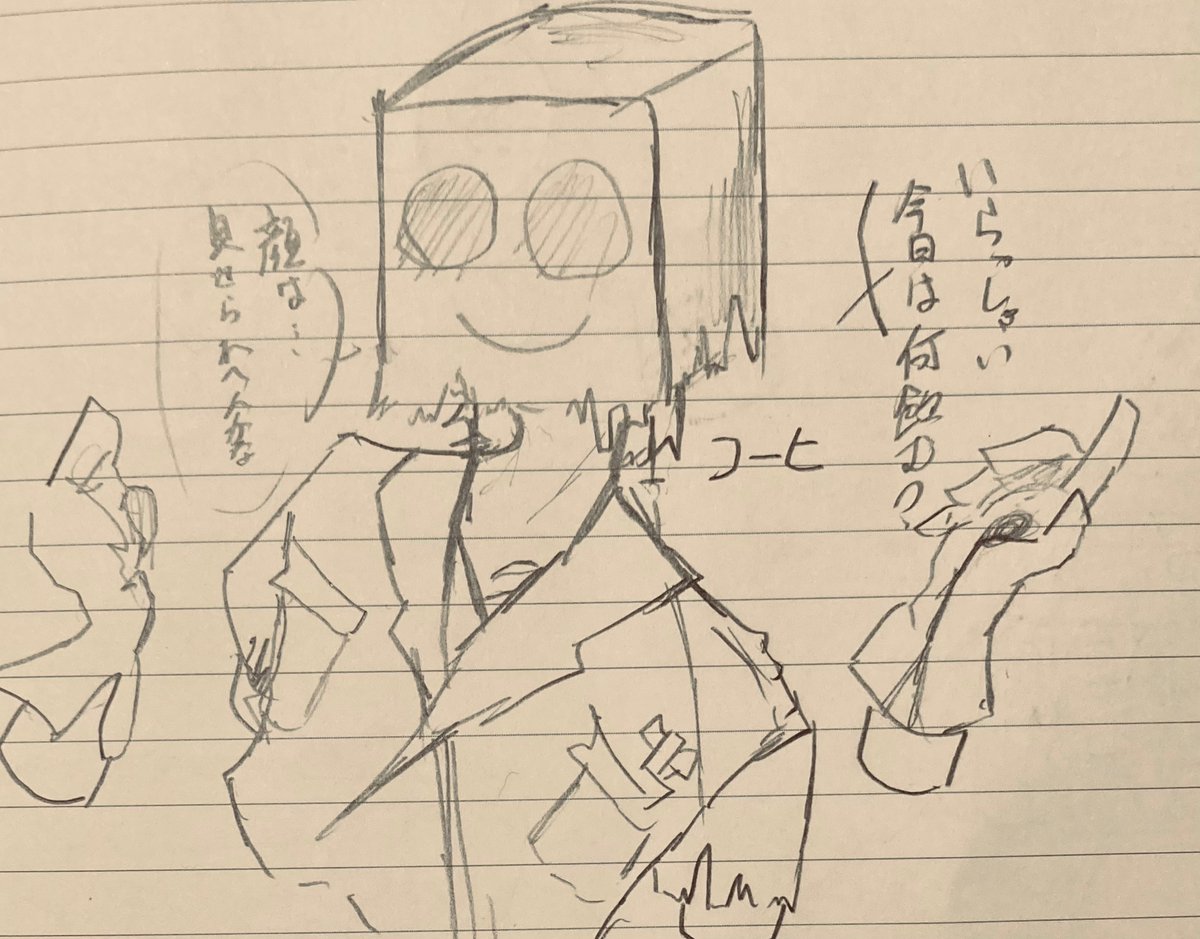 いらっしゃい
今日は何飲の
コーヒ
顔は…
見せられへんな